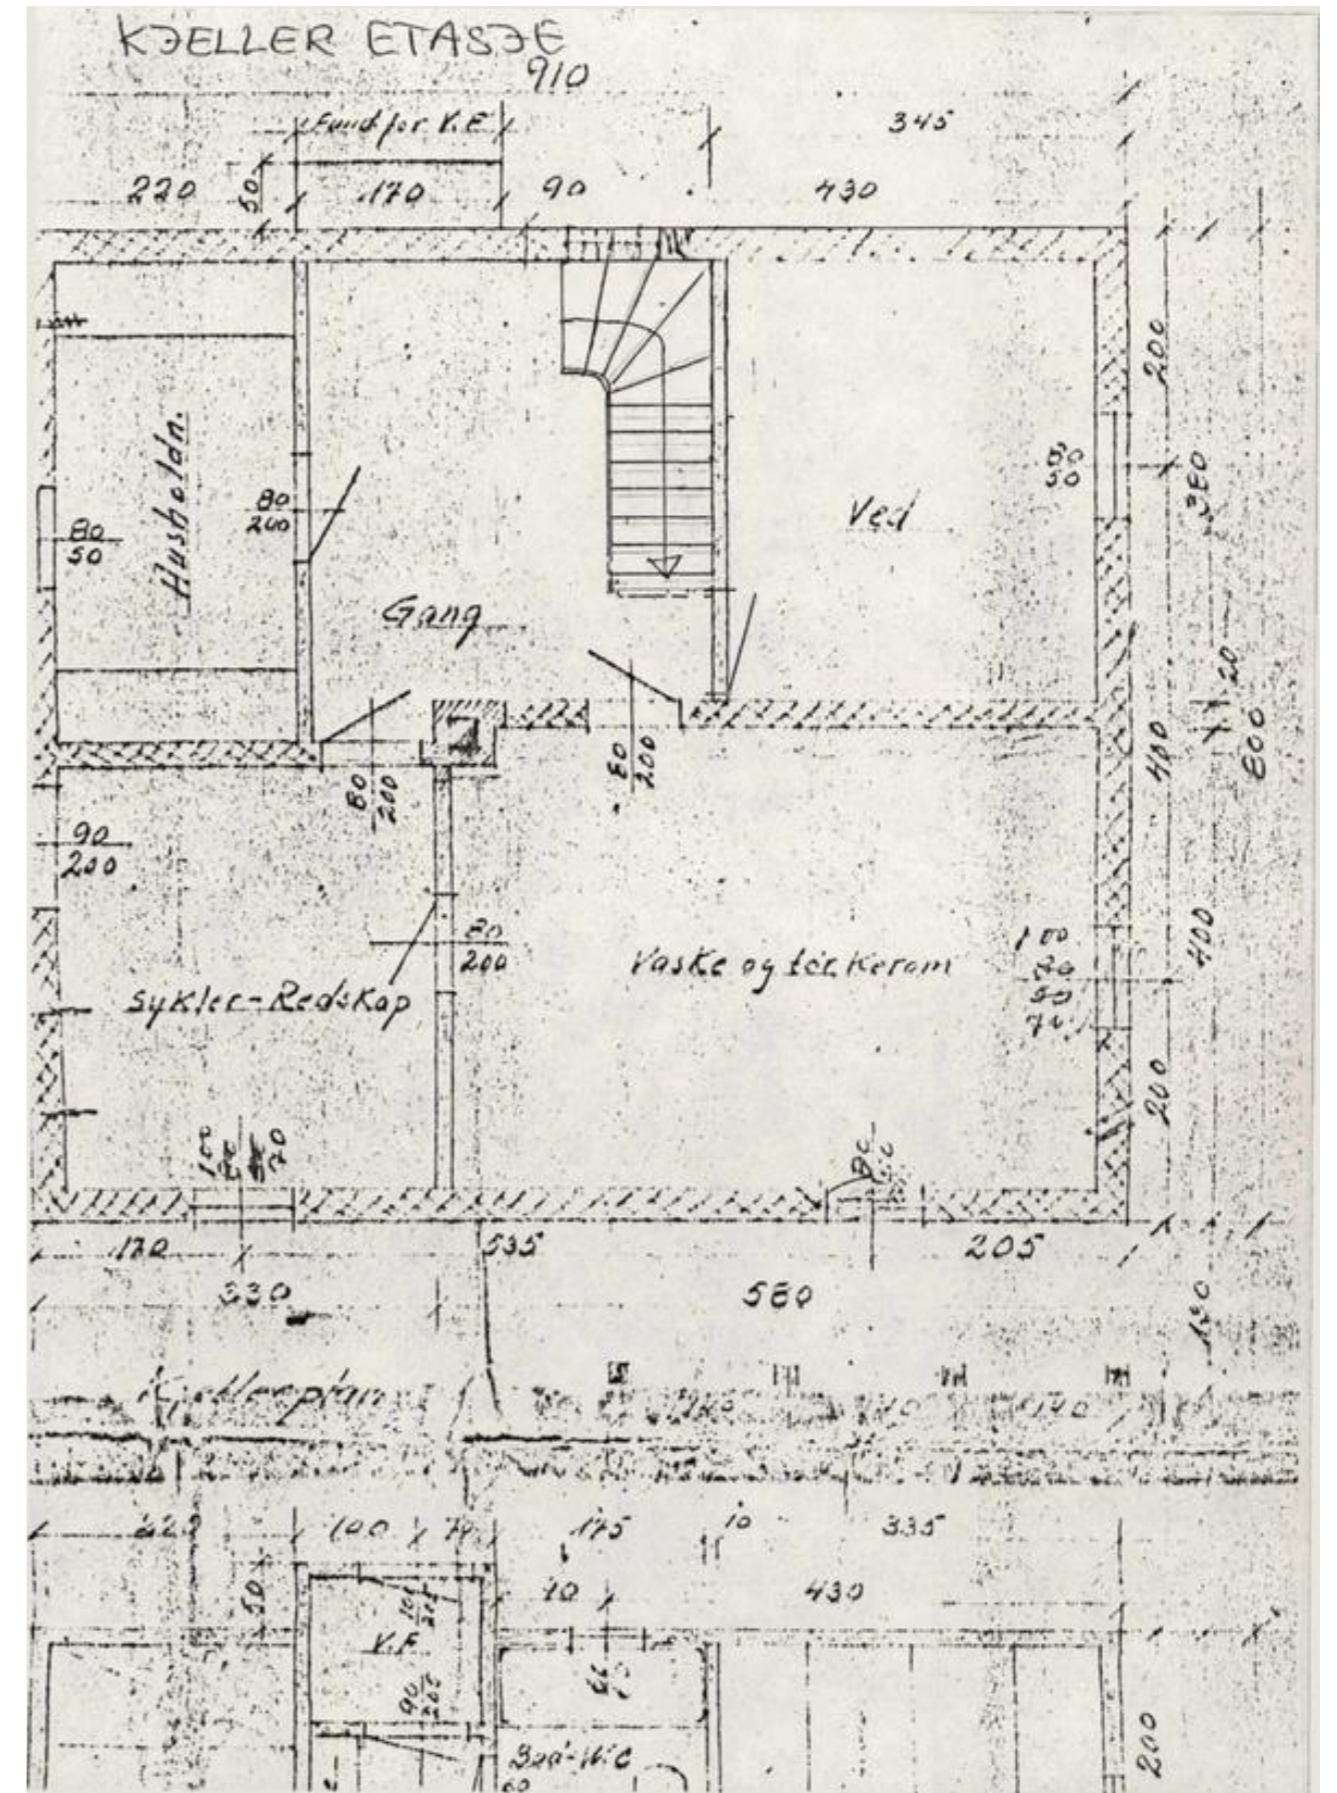 KJELLER ETASJE
910
Fund for V.F
345
220
50
170
90
430
200
380
80
50
Husholdn.
80
200
80
50
Ved
Gang
20
400
800
80
200
80
200
90
200
80
200
Vaske og tørkerom
100
80
50
70
400
sykler-Redskap
200
100
70
170
535
205
330
580
Kjellerplan
140
100
70
175
10
335
50
10
430
V.F.
90
205
Bad-W.C
200